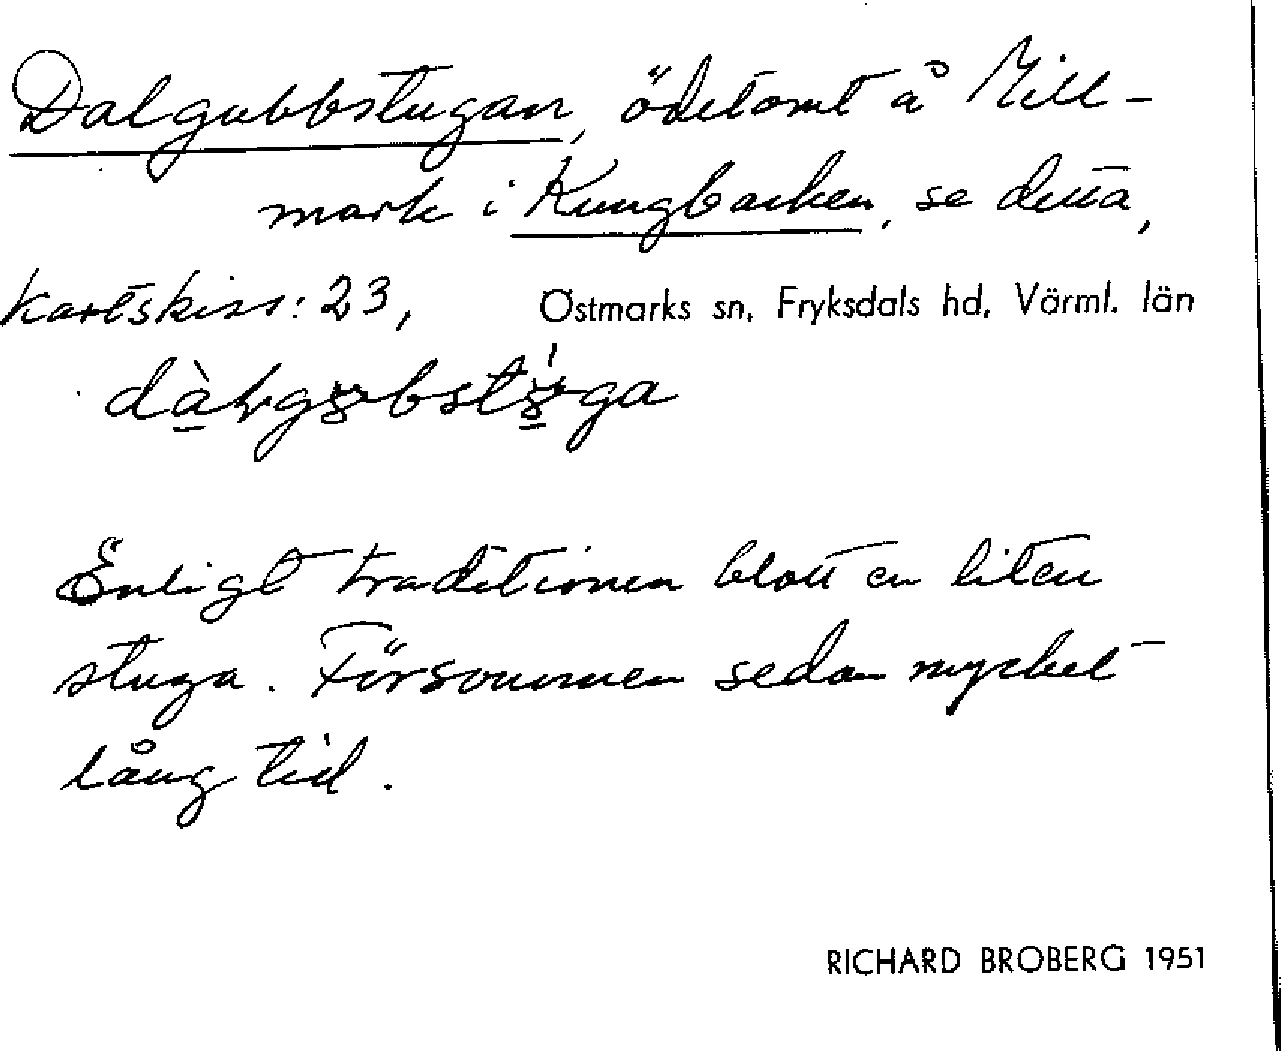 Dalgubbstugan, ödetomt å Till-
mark i Kungbacken, se detta,
kartskiss: 23, Östmarks sn, Fryksdals hd, Värml. län
Enligt traditionen blott en liten
stuga. Försvunnen sedan mycket
lång tid.
RICHARD BROBERG 1951